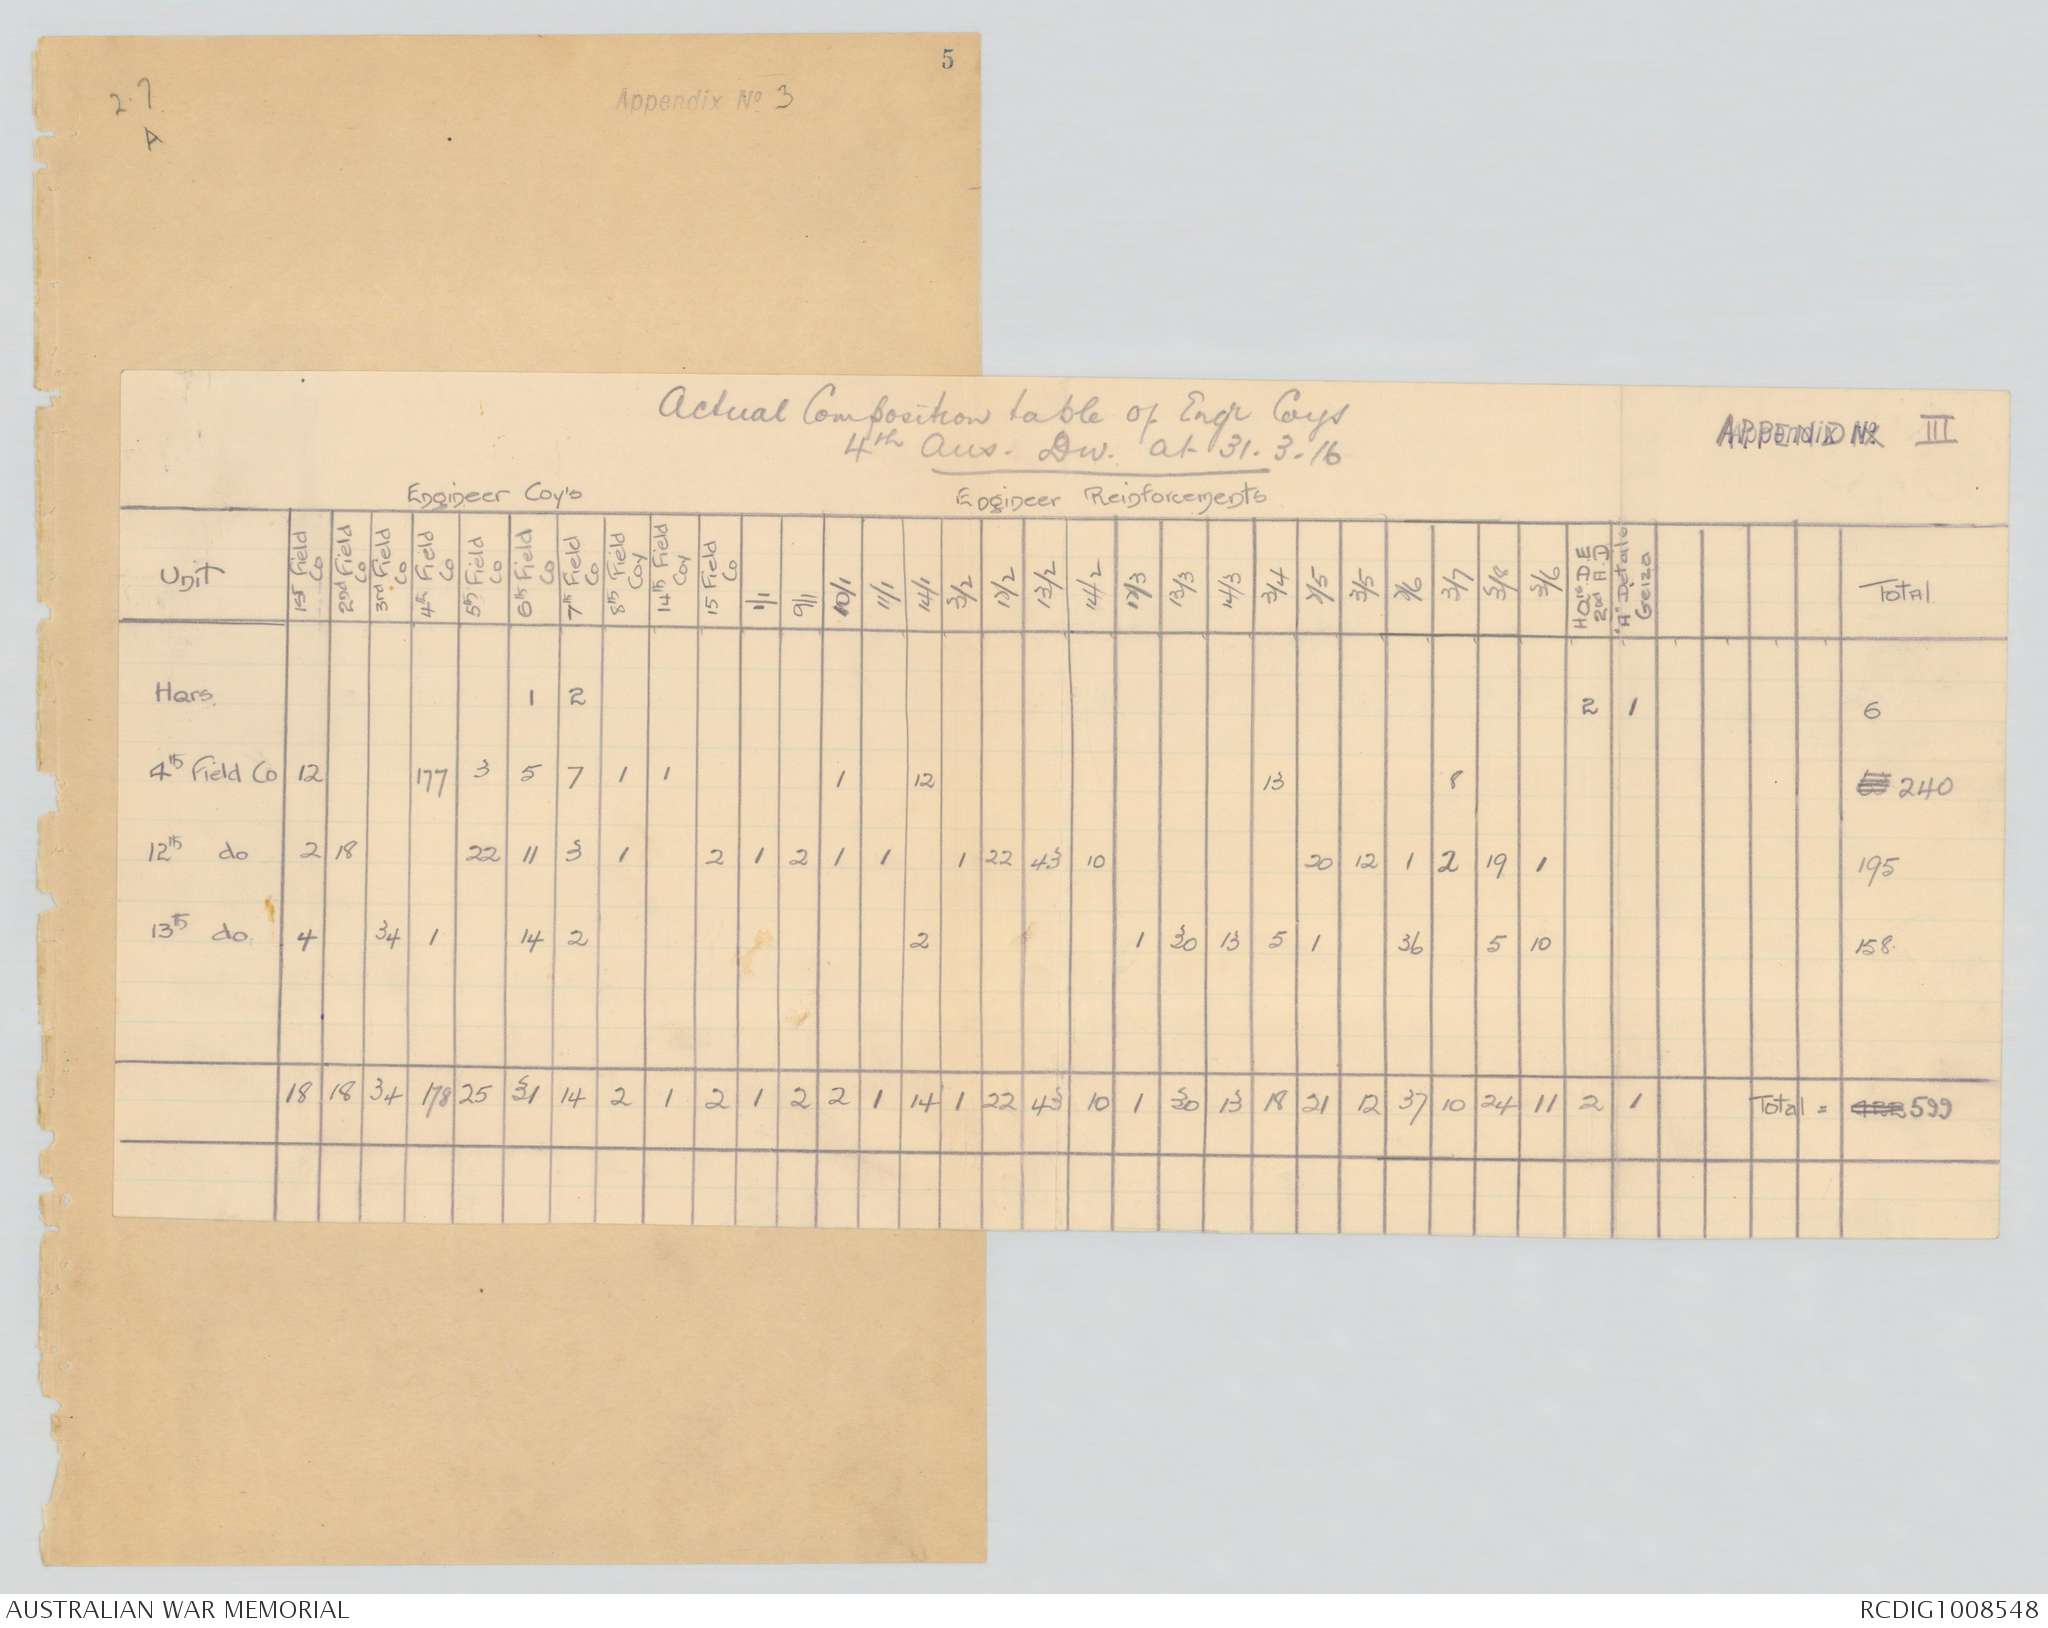 5
2.7
A
Appendix No 3
Actual Composition table of Engr Coys
4th Aus. Div. at 31.3.16
APPENDIX No III
Engineer Coy's Engineer Reinforcements
Unit | 1st Field Co | 2nd Field Co | 3rd Field Co | 4th Field Co | 5th Field Co | 6th Field Co | 7th Field Co | 8th Field Coy | 14th Field Coy | 15 Field Co | 1/1 | 9/1 | 10/1 | 11/1 | 14/1 | 3/2 | 12/2 | 13/2 | 14/2 | 12/3 | 13/3 | 14/3 | 3/4 | 2/5 | 3/5 | 2/6 | 3/7 | 3/8 | 3/6 | HQrs D.E 2nd A.D | "A" Details Geiza | Total
Hqrs. 1 2 2 1 6
4th Field Co 12 177 3 5 7 1 1 1 12 13 8 240
12th do 2 18 22 11 3 1 2 1 2 1 1 1 22 43 10 20 12 1 2 19 1 195
13th do 4 34 1 14 2 2 1 30 13 5 1 36 5 10 158.
18 18 34 178 25 31 14 2 1 2 1 2 2 1 14 1 22 43 10 1 30 13 18 21 12 37 10 24 11 2 1 Total = 599
AUSTRALIAN WAR MEMORIAL
RCDIG1008548